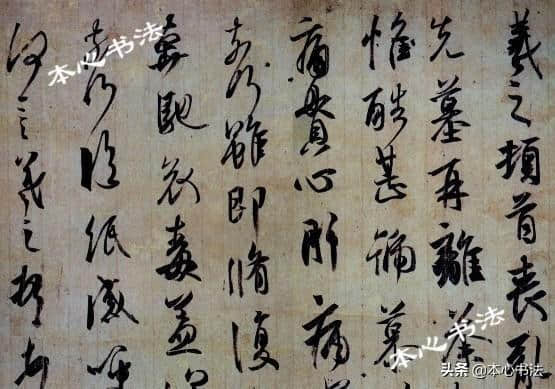 羲之頓首喪亂
先墓再離荼
惟酷甚號慕
痛貫心肝痛
奈何雖即脩復
奔馳哀毒益深
奈何臨紙感哽
何言羲之頓首
本心书法
本心书法
头条 @本心书法